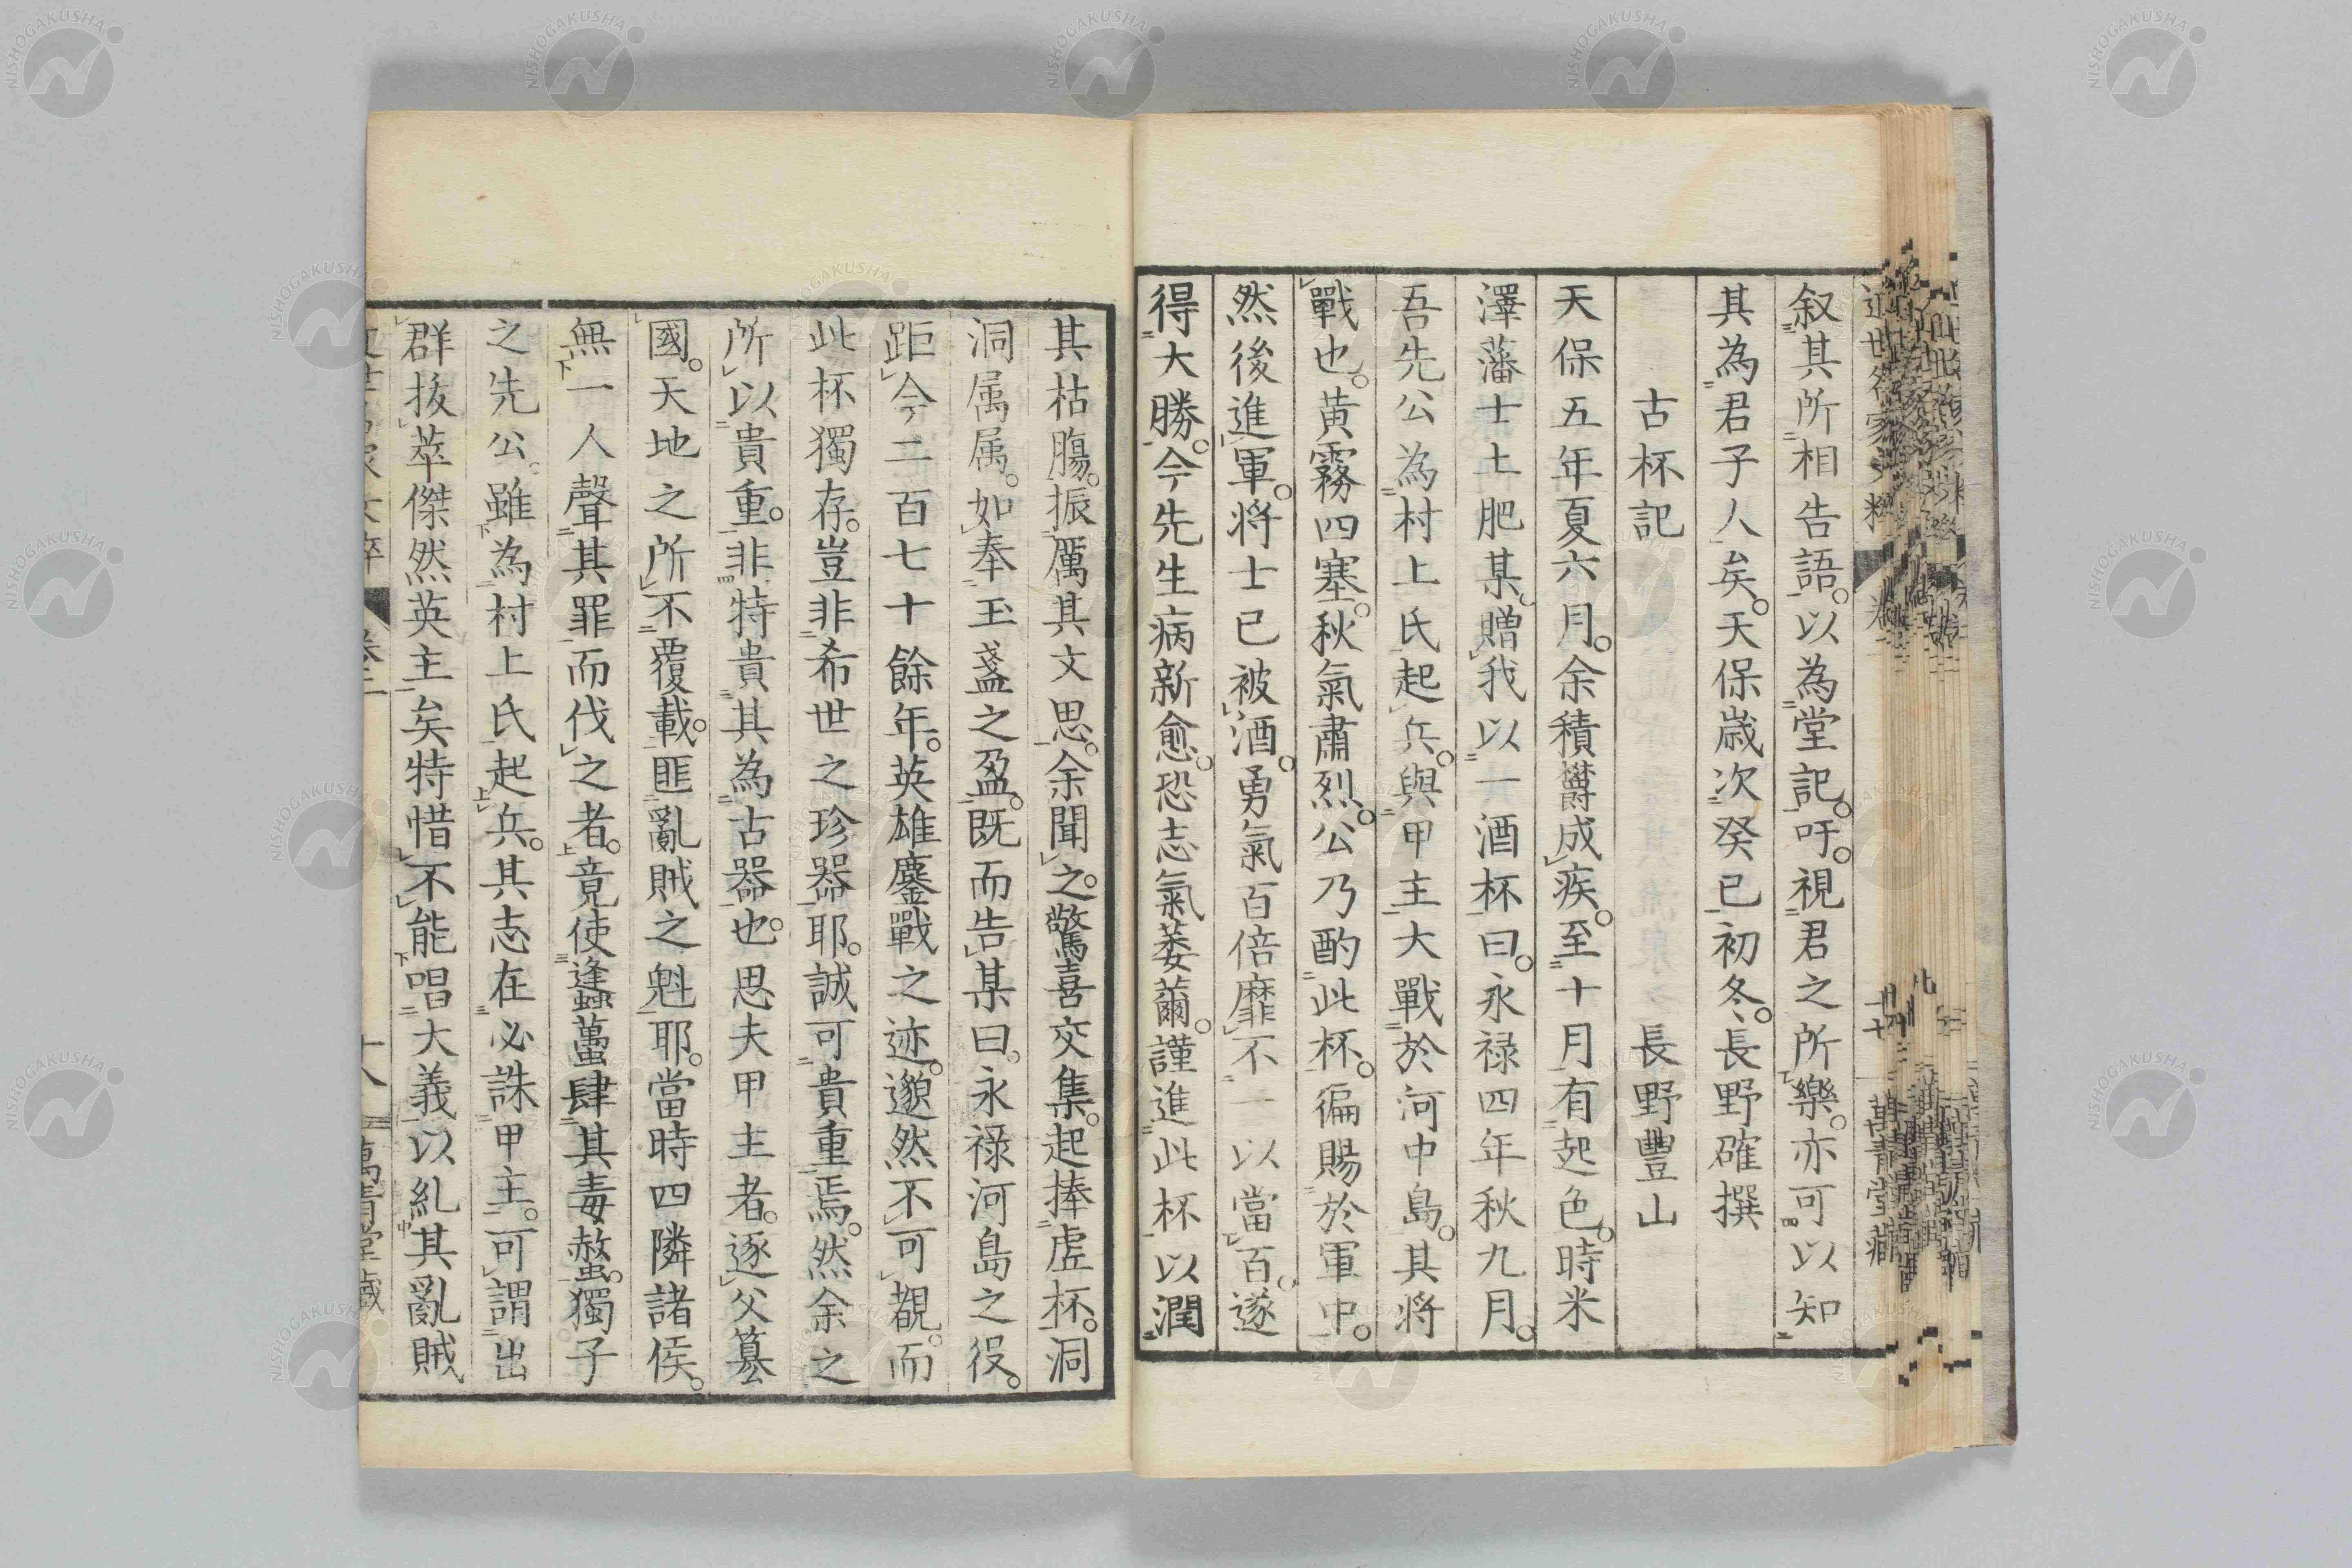 叙其所相告語。以為堂記。吁。視君之所樂。亦可以知
其為君子人矣。天保歳次癸巳初冬。長野確撰
古杯記 長野豐山
天保五年夏六月。余積欝成疾。至十月有起色。時米
澤藩士土肥某。贈我以一酒杯曰。永禄四年秋九月。
吾先公為村上氏起兵。與甲主大戰於河中島。其将
戰也。黄霧四塞。秋氣肅烈。公乃酌此杯。徧賜於軍中。
然後進軍。将士已被酒。勇氣百倍靡不一以當百。遂
得大勝。今先生病新愈。恐志氣萎薾。謹進此杯以潤
其枯膓。振厲其文思。余聞之。驚喜交集。起捧虚杯。洞
洞属属。如奉玉盞之盈。既而告某曰。永禄河島之役。
距今二百七十餘年。英雄鏖戰之迹。邈然不可覩。而
此杯獨存。豈非希世之珍器耶。誠可貴重焉。然余之
所以貴重。非特貴其為古器也。思夫甲主者。逐父簒
國。天地之所不覆載。匪亂賊之魁耶。當時四隣諸侯。
無一人聲其罪而伐之者。竟使蠭蠆肆其毒螫。獨子
之先公。雖為村上氏起兵。其志在必誅甲主。可謂出
群抜萃傑然英主矣特惜不能唱大義以糺其亂賊
萬青堂藏